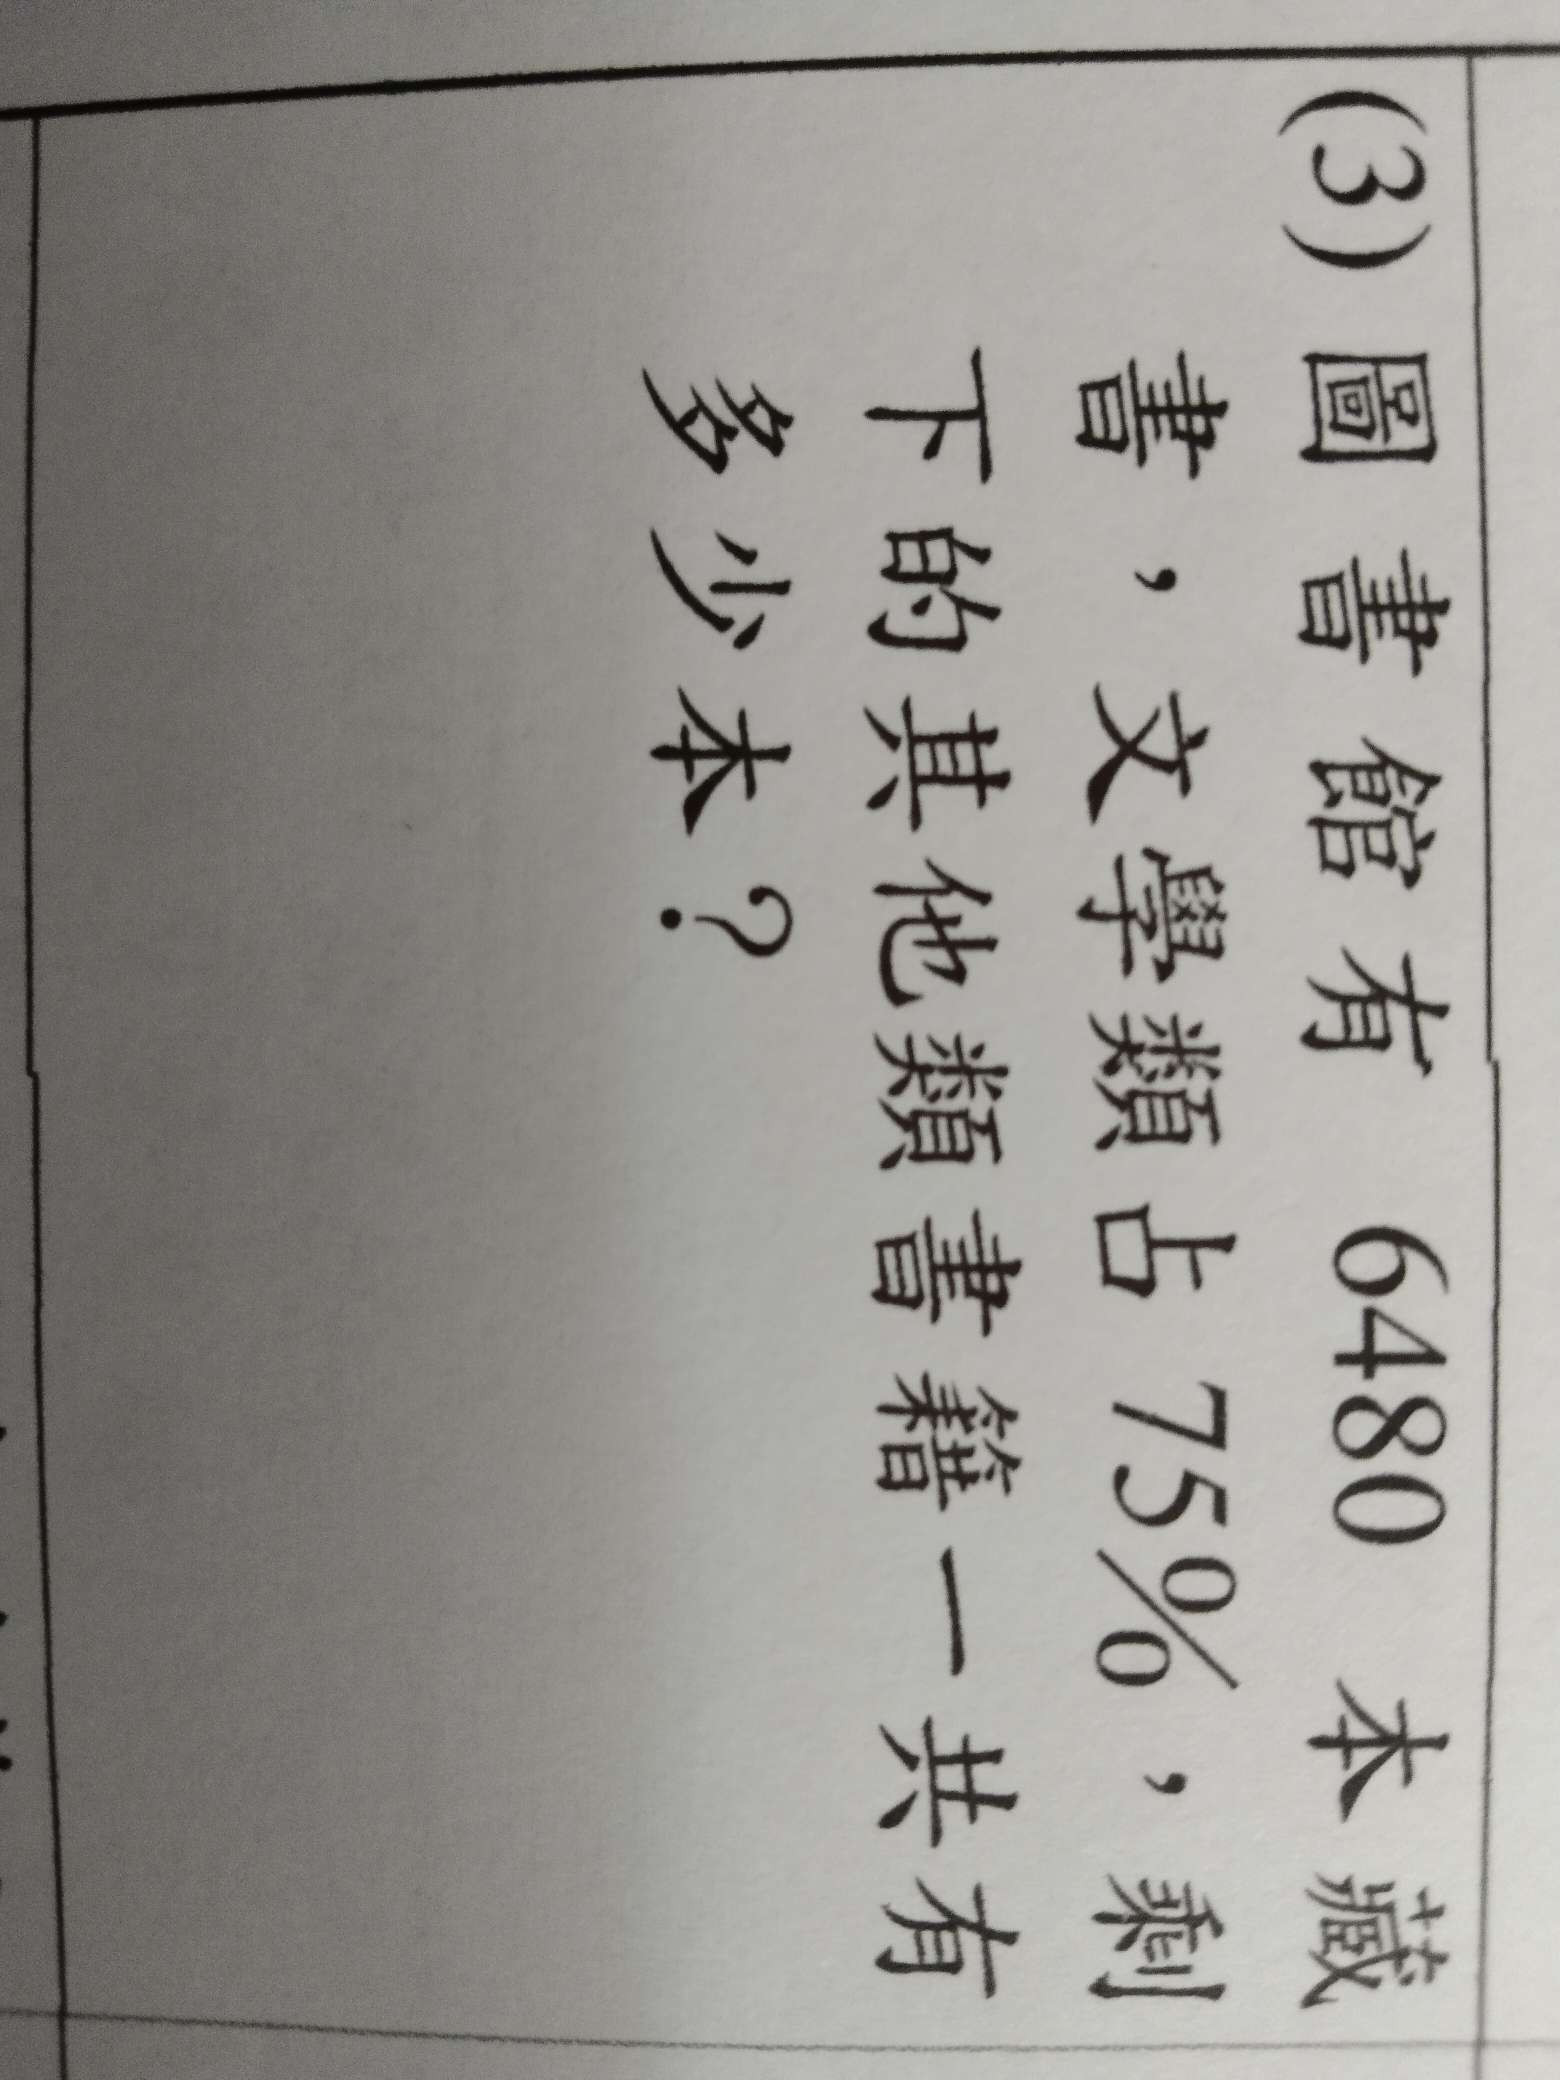 (3) 圖書館有 6480 本藏
書，文學類占 75%，剩
下的其他類書籍一共有
多少本？